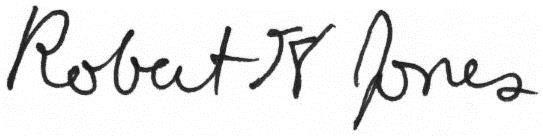 Robert Jones